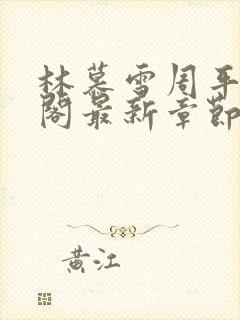 林慕雪周平
阁最新章節
黄江